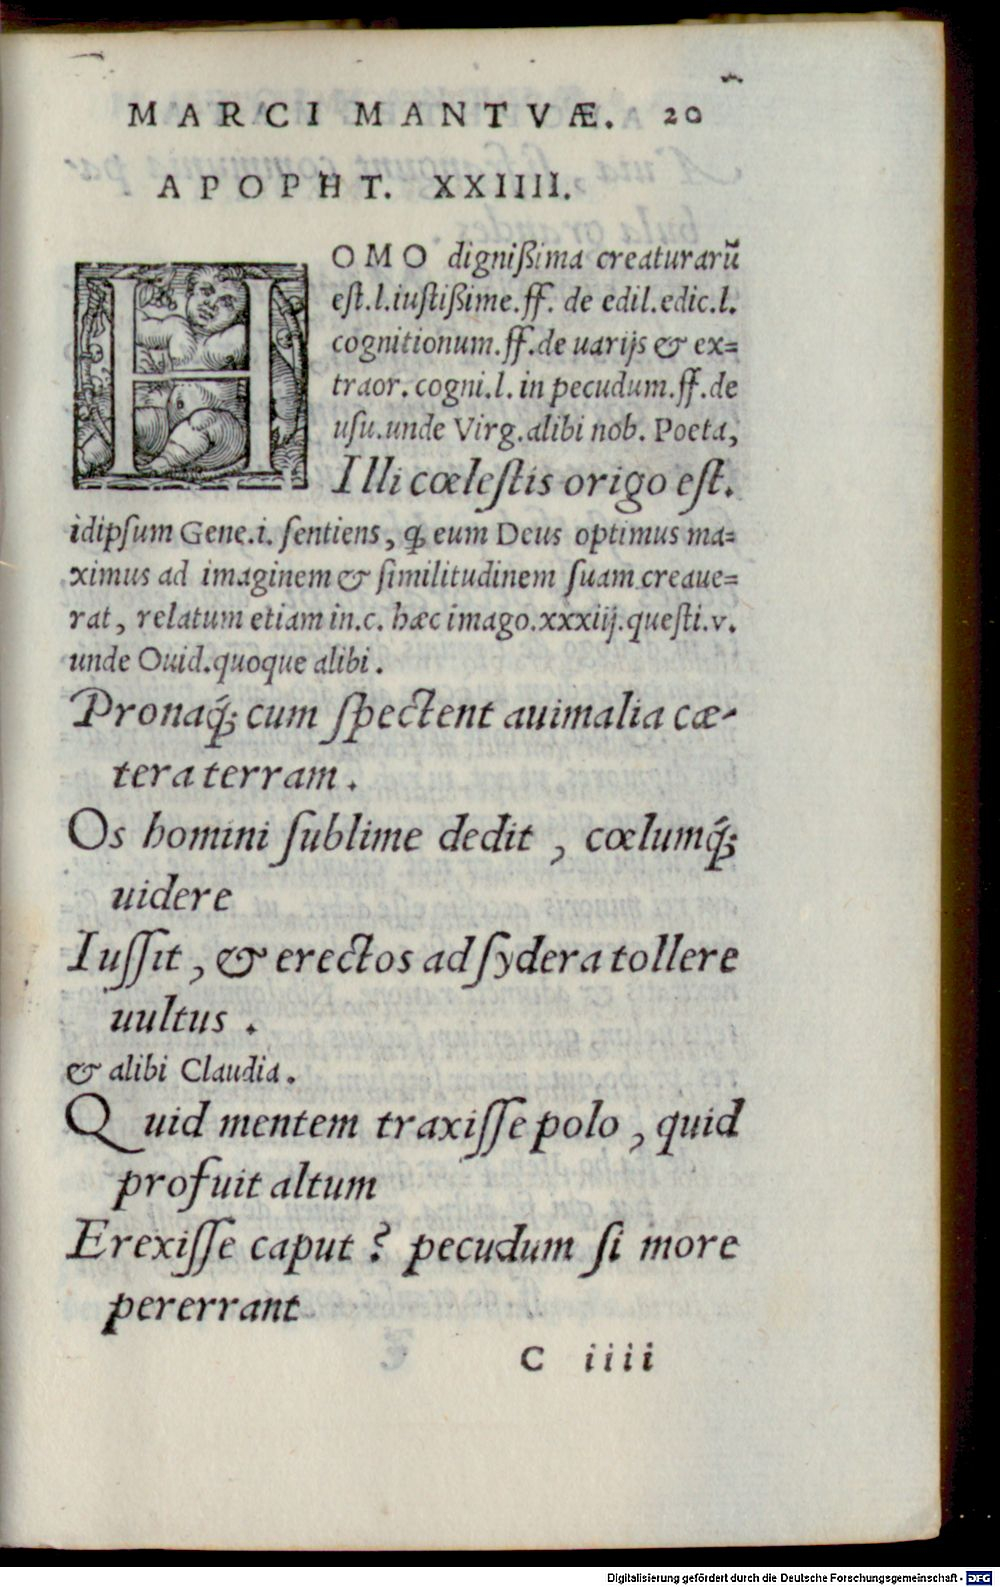 MARCI MANTVÆ. 20
APOPHT. XXIIII.
HOMO digniſsima creaturarũ
eſt.l.iuſtiſsime.ff. de edil.edic.l.
cognitionum.ff.de uarijs & ex=
traor. cogni.l. in pecudum.ff.de
uſu.unde Virg.alibi nob. Poeta,
Illi cœleſtis origo eſt.
idipſum Gene.i. ſentiens, ꝙ eum Deus optimus ma=
ximus ad imaginem & ſimilitudinem ſuam creaue=
rat, relatum etiam in.c. hæc imago.xxxiij.queſti.v.
unde Ouid.quoque alibi.
Pronaq́; cum ſpectent auimalia cæ-
tera terram.
Os homini ſublime dedit , cœlumq́;
uidere
Iuſſit , & erectos ad ſydera tollere
uultus .
& alibi Claudia.
Quid mentem traxiſſe polo , quid
profuit altum
Erexiſſe caput ? pecudum ſi more
pererrant
C iiii
Digitalisierung gefördert durch die Deutsche Forschungsgemeinschaft - DFG